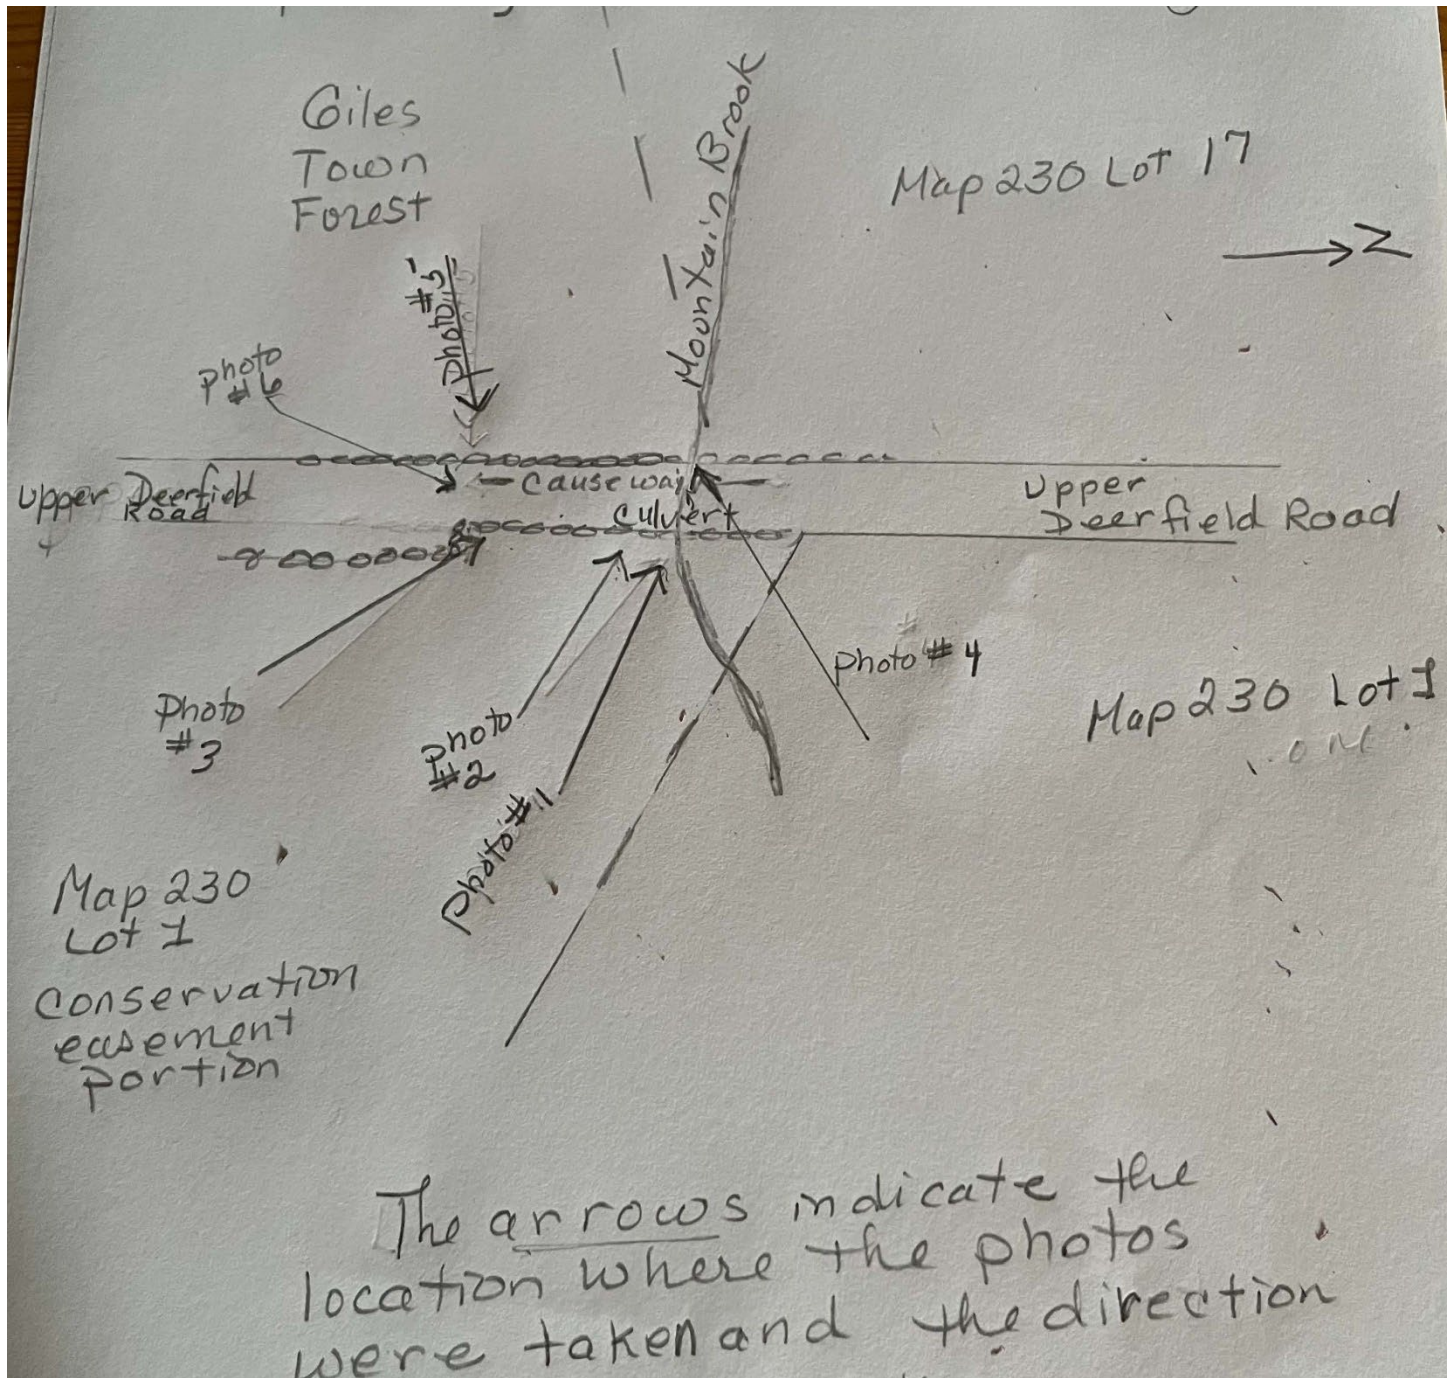 Giles
Town
Forest
Mountain Brook
Map 230 Lot 17
N
Photo #5
Photo
#6
Upper Deerfield
Road
Causeway
Culvert
Upper
Deerfield Road
Photo
#3
Photo
#2
Photo #1
Photo #4
Map 230 Lot 1
Map 230
Lot 1
Conservation
easement
portion
The arrows indicate the
location where the photos
were taken and the direction